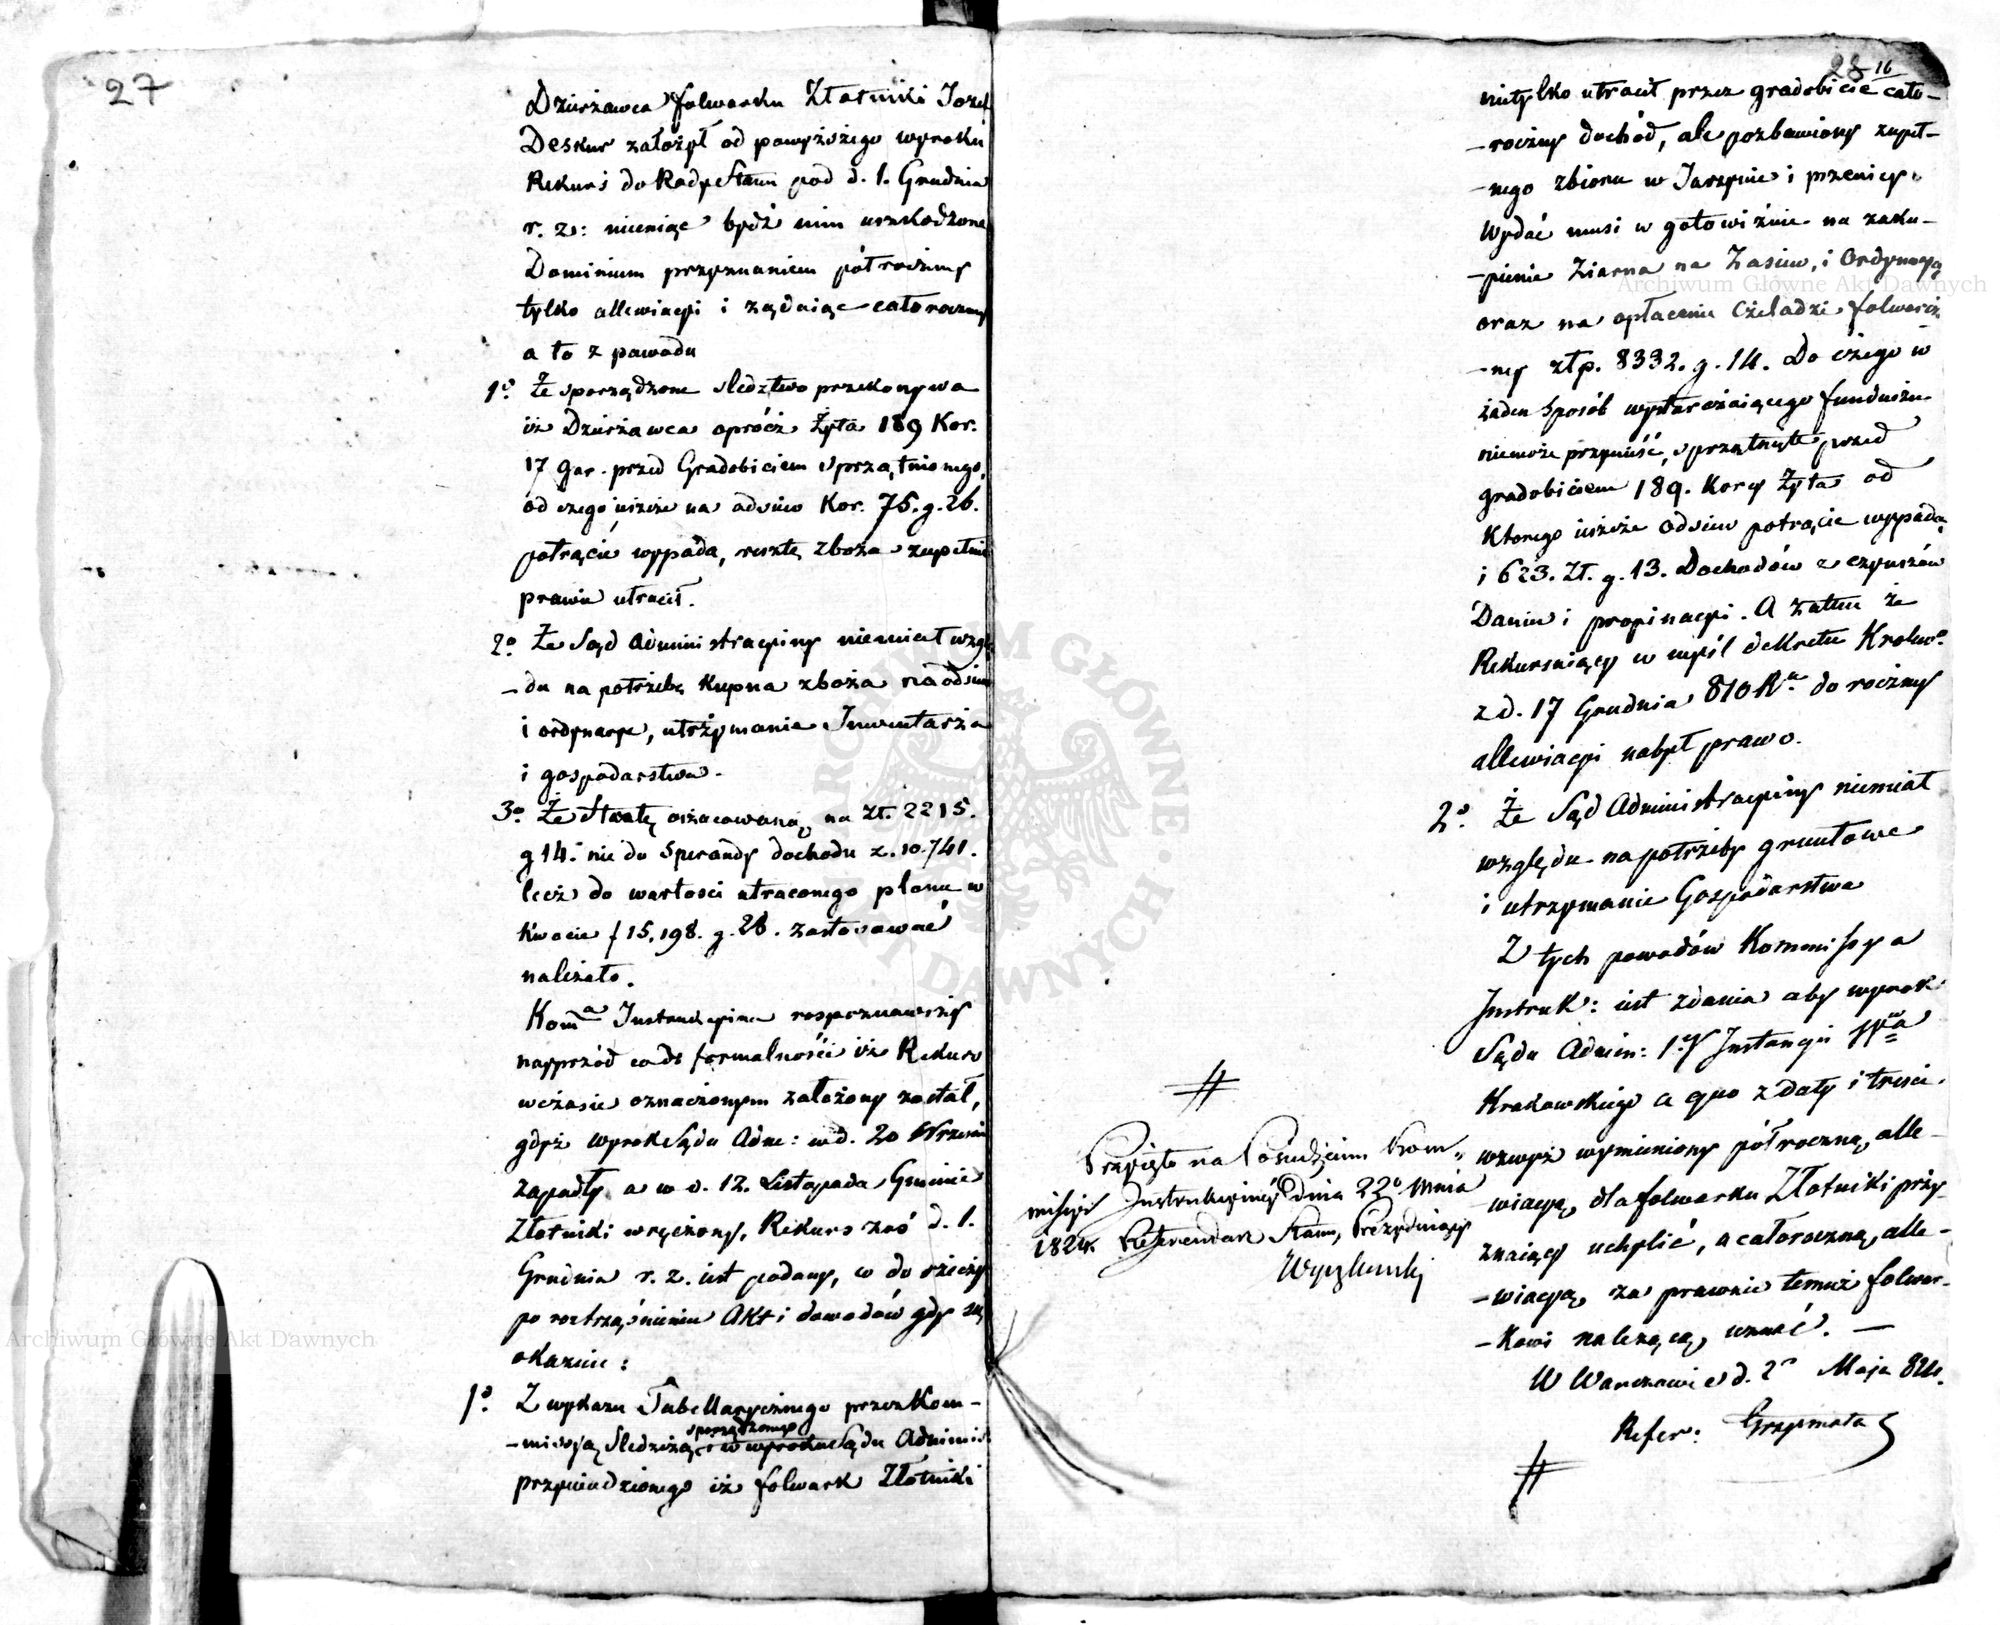 27
Dzierżawca folwarku Złotniki Jozef
Deskur założył od powyższego wyroku
Rekurs do Rady Stanu pod d. 1. Grudnia
r. z: mieniąc bydź nim uszkodzone
Dominium przyznaniem półroczney
tylko allewiacyi i żądaiąc całoroczney
a to z powodu
1o. Że sporządzone sledztwo przekonywa
iż Dzierżawca oprócz Żyta 189 Kor.
17 gar. przed Gradobiciem sprzątnionego,
od czego ieszcze na odsiew Kor. 75. g. 26.
potrącić wypada, resztę zboża zupełnie
prawie utracił.
2o. Że Sąd Administracyiny niemiał wzglę
-du na potrzebę kupna zboża na odsiew
i ordynaryę, utrzymanie Inwentarza
i gospodarstwa.
3o. Że Stratę oszacowaną na Zł. 2215.
g 14. nie do Sperandy dochodu z. 10.741.
lecz do wartości utraconego plonu w
kwocie f 15,198. g. 28. zastosować
należało.
Koma Instrukcyina rospoznawszy
nayprzód co do formalności iż Rekurs
w czasie oznaczonym założony został,
gdyż wyrok Sądu Adm: w d. 20 Wrześni
zapadły a w d. 12. Listopada Gminie
Złotniki wręczony, Rekurs zaś d. 1.
Grudnia r. z. iest podany, co do rzeczy
po roztrząśnieniu Akt i dowodów gdy się
okazuie:
1o. Z wykazu Tabellarycznego przez Kom-
sporządzonego
-missyą Sledczą i w wyroku Sądu Adminis
przywiedzionego iż folwark Złotniki
28 16
nietylko utracił przez gradobicie cało-
-roczny dochód, ale pozbawiony zupeł-
-nego zbioru w Jarzynie i przenicy
wydać musi w gotowiźnie na zaku-
-pienie Ziarna na Zasiew, i Ordynaryą
oraz na opłacenie Czeladzi folwarcz
-ney złp. 8332. g. 14. Do czego w
żaden sposób wystarczaiącego funduszu
niemoże przynieść, sprzątnięte przed
gradobiciem 189. Korcy Żyta od
ktorego ieszcze odsiew potrącić wypada
i 623. Zł. g. 13. Dochodów z czynszów
Danin i propinacyi. A zatem że
Rekursuiący w myśl dekretu Krolew.o
z d. 17 Grudnia 810 Ru do roczney
allewiacyi nabył prawo.
2o. Że Sąd Administracyiny niemiał
względu na potrzeby gruntowe
i utrzymanie Gospodarstwa
Z tych powodów Kommissya
Instruk: iest zdania aby wyrok
Sądu Admin: 1.ey Instancyi Wwa
Krakowskiego a quo z daty i treści
wzwyż wymieniony półroczną alle-
-wiacyą dla folwarku Złotniki przy-
znaiący uchylić, a całoroczną alle-
-wiacyą za prawnie temuż folwar-
-kowi należącą uznać. —
W Warszawie d. 2o Maja 824.
Refer: Grzymała
#
#
Przyięto na Posiedzieniu Kom„
missyi Instrukcyiney dnia 22o Maia
1824. Referendarz Stanu, Prezyduiący
Wyczechowski
Archiwum Główne Akt Dawnych
Archiwum Główne Akt Dawnych
ARCHIWUM GŁÓWNE AKT DAWNYCH